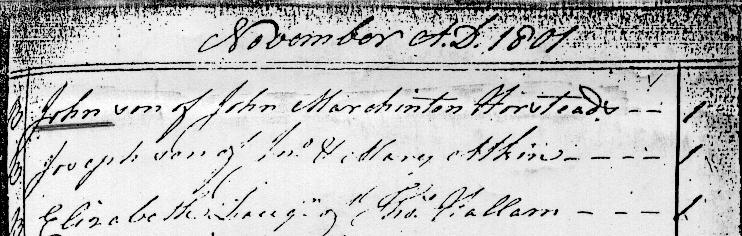 November A.D. 1801
B John son of John Marchinton Horsteads -- 1
B Joseph son of Jno & Mary Atkin ---- 1
B Elizabeth Daugr of Thos Hallam --- 1